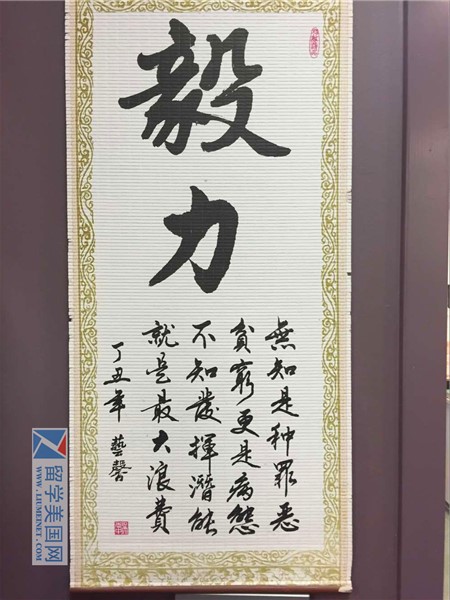 毅力
無知是种罪恶
貧窮更是病態
不知發揮潛能
就是最大浪費
丁丑年 藝馨
留学美国网
WWW.LIUMEINET.COM